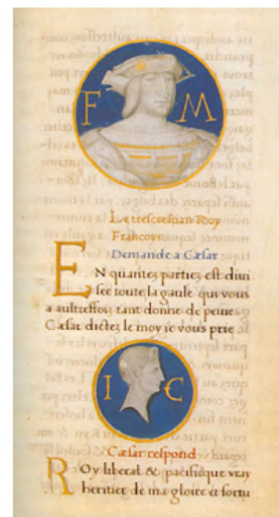 F M
Le treſcreſtian Roy
Francoys
Demande a Cæſar
EN quantes parties eſt diui
ſee toute la gaule qui vous
a aultreffoiſ tant donne de peine
Cæſar dictes le moy ie vous prie
I C
Cæſar reſpond
ROy liberal & pacifique vray
heritier de ma gloire et fortu